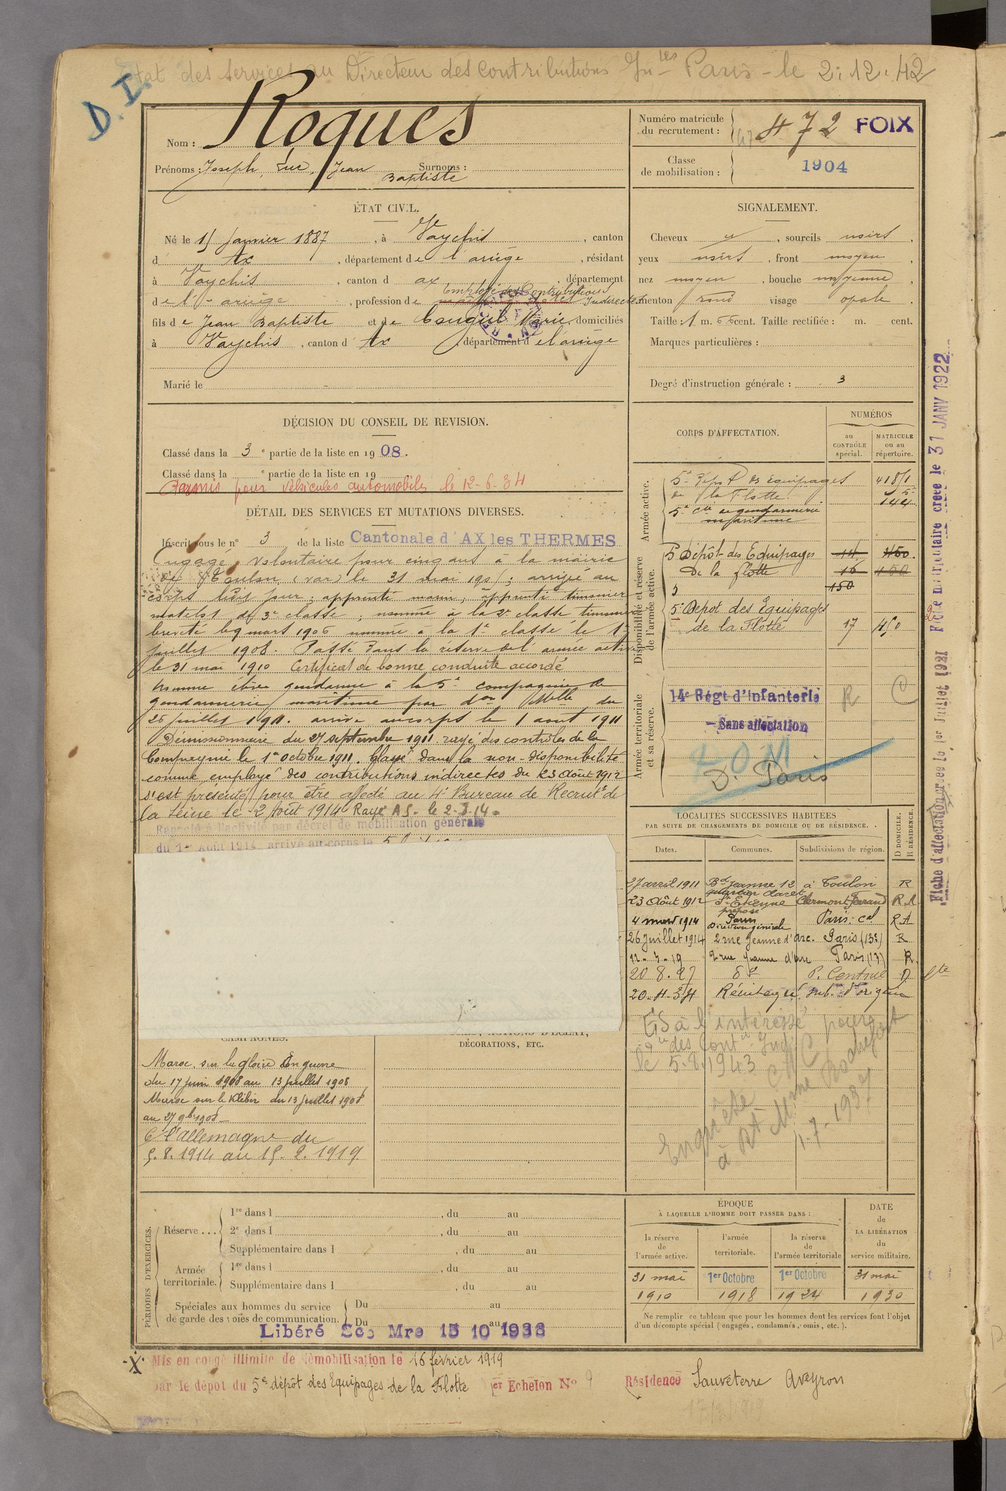 Etat des services au Directeur des contributions Ind les Paris - le 2.12.42
D. I.
Nom : Roques
Prénoms : Joseph, Luc, Jean Baptiste Surnoms :
Numéro matricule du recrutement : 472 FOIX
Classe de mobilisation : 1904
ÉTAT CIVIL.
Né le 15 janvier 1887, à Vaychis, canton
d Ax, département de l'ariège, résidant
à Vaychis, canton d ax département
de l'ariège, profession de Employé des Contributions Indirectes
fils de Jean Baptiste et de Marie domiciliés
à Vaychis, canton d Ax département d el'ariège
Marié le
SIGNALEMENT.
Cheveux, sourcils noirs
yeux noirs, front moyen
nez moyen, bouche moyenne
menton rond visage ovale
Taille : 1 m. 66 cent. Taille rectifiée : m. cent.
Marques particulières :
Degré d'instruction générale : 3
DÉCISION DU CONSEIL DE REVISION.
Classé dans la 3e partie de la liste en 1908.
Classé dans la e partie de la liste en 19
Permis pour véhicules automobiles le 12-6-34
DÉTAIL DES SERVICES ET MUTATIONS DIVERSES.
Inscrit sous le n° 3 de la liste Cantonale d'AX les THERMES
Engagé volontaire pour cinq ans à la mairie
de Toulon (var) le 31 mai 1905 ; arrivé au
corps ledit jour ; apprenti marin, apprenti timonier
matelot de 3e classe ; nommé à la 2e classe timonier
breveté le 9 mars 1906 nommé à la 1e classe le 1er
juillet 1908. Passé dans la réserve de l'armée active
le 31 mai 1910 Certificat de bonne conduite accordé
Nommé élève gendarme à la 5e compagnie de
gendarmerie maritime par don Mlle du
25 juillet 1911. arrivé au corps le 1 aout 1911
Démissionnaire du 27 septembre 1911 rayé des contrôles de la
Compagnie le 1er octobre 1911. Classé dans la non-disponibilité
comme employé des contributions indirectes du 23 Août 1912
s'est présenté pour être affecté au 4e Bureau de Recrutt de
la Seine le 2 Août 1914 Rayé A.S. le 2-3-14.
Rappelé à l'activité par décret de mobilisation générale
du 1er Août 1914, arrivé au corps le
CORPS D'AFFECTATION.
NUMÉROS
au CONTRÔLE spécial.
MATRICULE ou au répertoire.
Armée active.
5e Dépôt des équipages
de la Flotte
5e Cie de gendarmerie
maritime
Disponibilité et réserve de l'armée active.
5 Dépôt des Equipages
de la flotte
150
5e Depot des Equipages
de la Flotte 17
Armée territoriale et sa réserve.
14e Régt d'Infanterie R
Sans affectation
D. Paris
LOCALITÉS SUCCESSIVES HABITÉES
PAR SUITE DE CHANGEMENTS DE DOMICILE OU DE RÉSIDENCE.
Dates. Communes. Subdivisions de région. D DOMICILE. R RÉSIDENCE.
27 avril 1911 Bd Jeanne 12 à Toulon R
23 Août 1912 St Etienne Clermont Ferrand R A
4 mars 1914 Paris Direction générale Paris - cal R A
26 juillet 1914 2 rue Jeanne d'arc. Paris (13e) R
12-7-19 2 rue Jeanne d'arc Paris (13) R
20.8.27 do P. Central D
20-4-34 Réintégré sub. d'origine
ES à l'intéressé pour
des Contr Ind
le 5.8.1943
Enquête
à Rochefort
1-7-1937
CAMPAGNES.
DÉCORATIONS, ETC.
Maroc, sur la gloire En guerre
du 17 juin 1908 au 13 juillet 1908
Maroc sur le Kléber du 13 juillet 1908
au 27 9bre 1908
Ct l'allemagne du
5.8.1914 au 15.2.1919
PÉRIODES D'EXERCICES.
Réserve . . .
1re dans l , du au
2e dans l , du au
Supplémentaire dans l , du au
Armée territoriale.
1re dans l , du au
Supplémentaire dans l , du au
Spéciales aux hommes du service de garde des voies de communication.
Du au
Du au
Libéré Sce Mre 15 10 1936
ÉPOQUE
À LAQUELLE L'HOMME DOIT PASSER DANS :
la réserve de l'armée active.
l'armée territoriale.
la réserve de l'armée territoriale
DATE de LA LIBÉRATION du service militaire.
31 mai 1910
1er Octobre 1918
1er Octobre 1924
31 mai 1930
Ne remplir ce tableau que pour les hommes dont les services font l'objet
d'un décompte spécial (engagés, condamnés, omis, etc.).
Mis en congé illimité de démobilisation le 16 février 1919
par le dépôt du 5e dépôt des Equipages de la Flotte 1er Echelon N° 9 Résidence Sauveterre Aveyron
Fiche d'affectation créée le 1er Juillet 1921 Fiche matriculaire créée le 31 JANV 1922